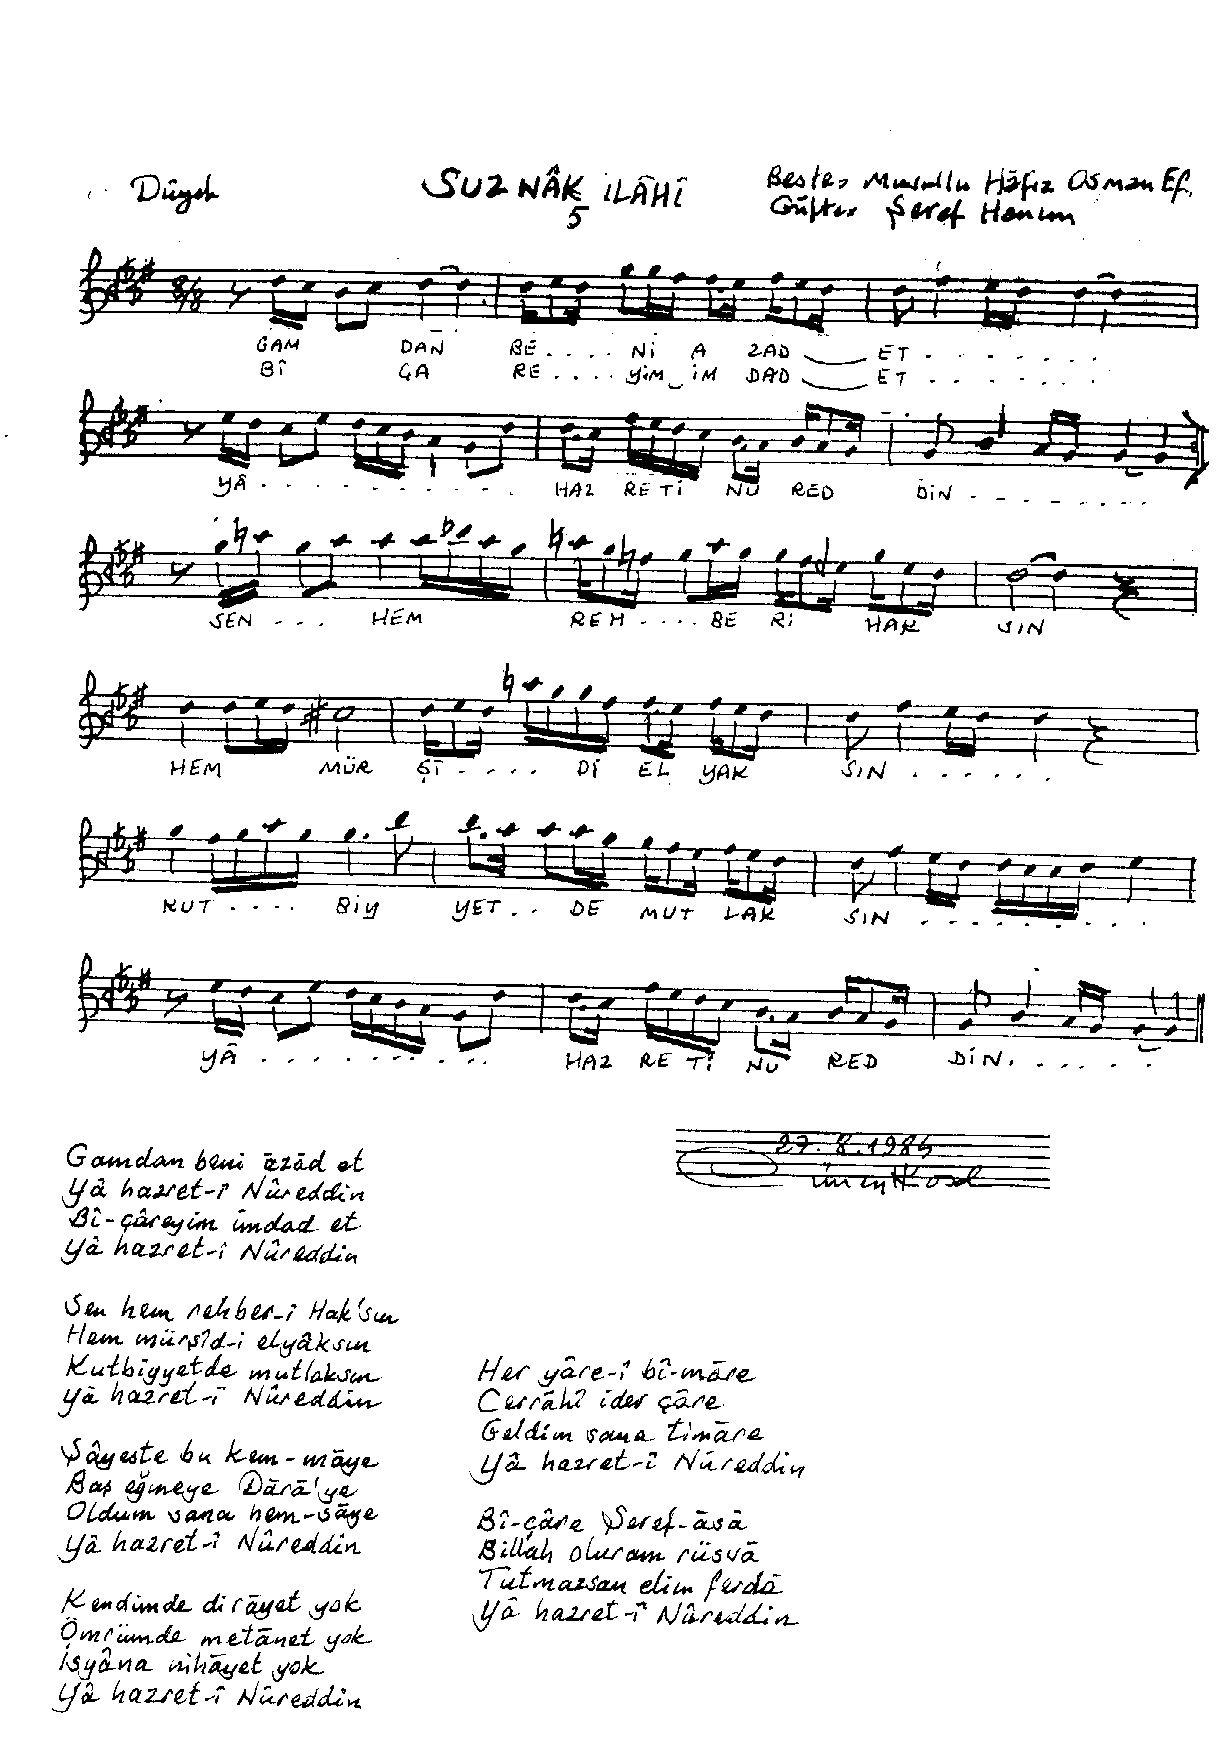 Düyek
SUZNÂK İLÂHÎ
5
Beste: Musullu Hâfız Osman Ef.
Güfte: Şeref Hanım
8/8
GAM DAN BE.... Nİ A ZAD ET.......
BÎ ÇA RE.... YİM İM DAD ET.......
YÂ.......... HAZ RE Tİ NU RED DİN.......
SEN... HEM REH.... BE Rİ HAK SIN
HEM MÜR Şİ.... Dİ EL YAK SIN......
KUT.... BİY YET.. DE MUT LAK SIN.......
YÂ.......... HAZ RE Tİ NU RED DİN......
27.8.1984
Gamdan beni âzâd et
Yâ hazret-î Nûreddin
Bî-çâreyim imdad et
Yâ hazret-î Nûreddin
Sen hem rehber-î Hak'sın
Hem mürşîd-i elyâksın
Kutbiyyetde mutlaksın
Yâ hazret-î Nûreddin
Şâyeste bu kem-mâye
Baş eğmeye Dârâ'ye
Oldum sana hem-sâye
Yâ hazret-î Nûreddin
Kendimde dirâyet yok
Ömrümde metânet yok
İsyâna nihâyet yok
Yâ hazret-î Nûreddin
Her yâre-î bî-mâre
Cerrâhî ider çâre
Geldim sana timâre
Yâ hazret-î Nûreddin
Bî-çâre Şeref-âsâ
Billâh oluram rüsvâ
Tutmazsan elim ferdâ
Yâ hazret-î Nûreddin